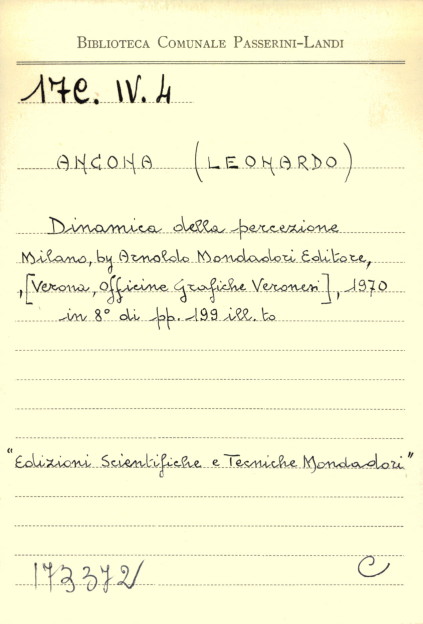 BIBLIOTECA COMUNALE PASSERINI-LANDI
17C. IV. 4
ANCONA (LEONARDO)
Dinamica della percezione
Milano, by Arnoldo Mondadori Editore,
,[Verona, Officine Grafiche Veronesi], 1970
in 8° di pp. 199 ill.to
"Edizioni Scientifiche e Tecniche Mondadori"
173372
C